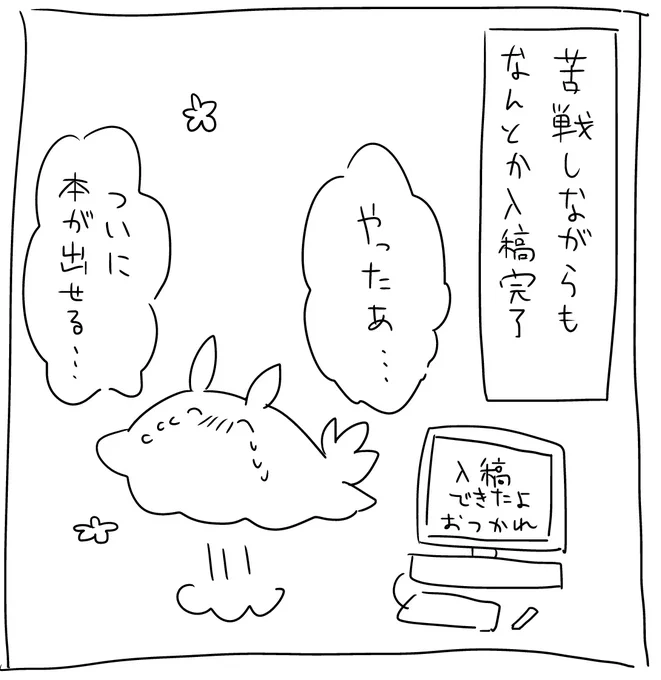 苦戦しながらも
なんとか入稿完了
やったあ…
ついに
本が出せる…
入稿
できたよ
おつかれ